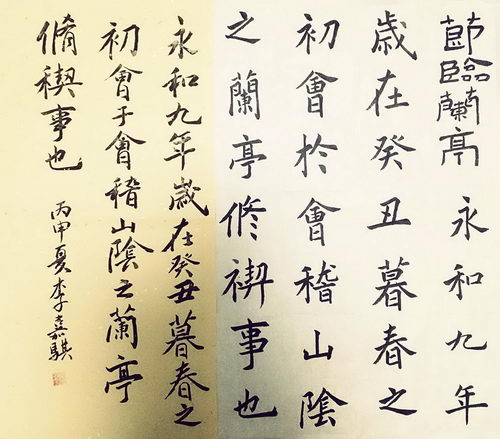 節臨蘭亭 永和九年
歲在癸丑暮春之
初會於會稽山陰
之蘭亭修禊事也
永和九年歲在癸丑暮春之
初會于會稽山陰之蘭亭
脩禊事也
丙申夏李嘉騏